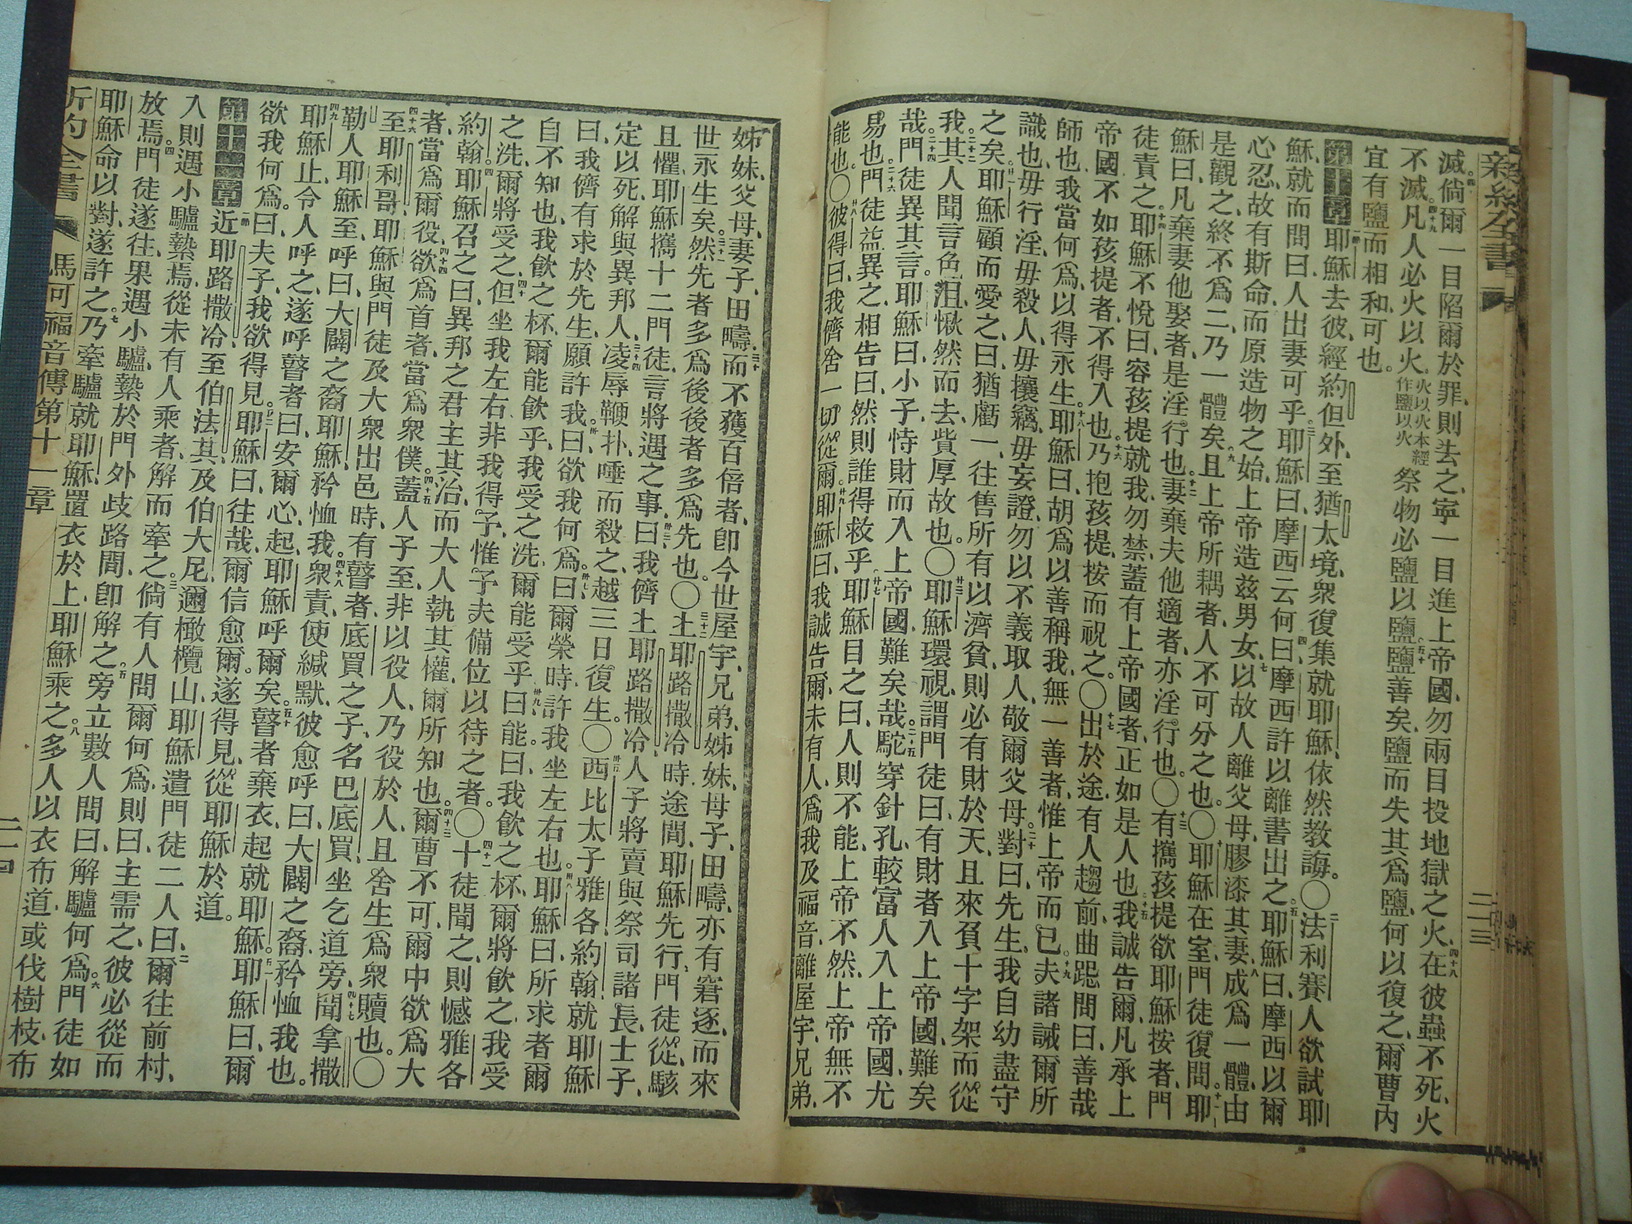 新約全書
二十三
滅、倘爾一目陷爾於罪、則去之、寧一目進上帝國、勿兩目投地獄之火、在彼蟲不死、火
不滅、凡人必火以火、火以火本經作鹽以火祭物必鹽以鹽、鹽善矣、鹽而失其爲鹽、何以復之、爾曹內
宜有鹽、而相和可也。
第十章耶穌去彼、經約但外、至猶太境、衆復集就耶穌、依然教誨。〇法利賽人欲試耶
穌、就而問曰、人出妻可乎、耶穌曰、摩西云何、曰、摩西許以離書出之、耶穌曰、摩西以爾
心忍、故有斯命、而原造物之始、上帝造茲男女、以故人離父母、膠漆其妻、成爲一體、由
是觀之、終不爲二、乃一體矣、且上帝所耦者、人不可分之也。〇耶穌在室、門徒復問、耶
穌曰、凡棄妻他娶者、是淫行也、妻棄夫他適者、亦淫行也。〇有攜孩提、欲耶穌按者、門
徒責之、耶穌不悅曰、容孩提就我、勿禁、蓋有上帝國者、正如是人也、我誠告爾、凡承上
帝國、不如孩提者、不得入也、乃抱孩提、按而祝之。〇出於途、有人趨前、曲跽問曰、善哉
師也、我當何爲、以得永生、耶穌曰、胡爲以善稱我、無一善者、惟上帝而已、夫諸誡爾所
識也、毋行淫、毋殺人、毋攘竊、毋妄證、勿以不義取人、敬爾父母、對曰、先生、我自幼盡守
之矣、耶穌顧而愛之、曰、猶虧一、往售所有以濟貧、則必有財於天、且來負十字架而從
我、其人聞言色沮、愀然而去、貲厚故也。〇耶穌環視、謂門徒曰、有財者入上帝國、難矣
哉、門徒異其言、耶穌曰、小子、恃財而入上帝國、難矣哉、駝穿針孔、較富人入上帝國、尤
易也、門徒益異之、相告曰、然則誰得救乎、耶穌目之曰、人則不能、上帝不然、上帝無不
能也。〇彼得曰、我儕舍一切從爾、耶穌曰、我誠告爾、未有人爲我及福音、離屋宇、兄弟、
姊妹、父母、妻子、田疇、而不獲百倍者、卽今世屋宇、兄弟、姊妹、母子、田疇、亦有窘逐、而來
世永生矣、然先者多爲後、後者多爲先也。〇上耶路撒冷時、途間、耶穌先行、門徒從、駭
且懼、耶穌攜十二門徒、言將遇之事、曰、我儕上耶路撒冷、人子將賣與祭司諸長、士子、
定以死、解與異邦人、凌辱鞭扑、唾而殺之、越三日復生。〇西比太子雅各、約翰就耶穌
曰、我儕有求於先生、願許我、曰、欲我何爲、曰、爾榮時、許我坐左右也、耶穌曰、所求者爾
自不知也、我飮之杯、爾能飮乎、我受之洗、爾能受乎、曰、能、曰、我飮之杯、爾將飮之、我受
之洗、爾將受之、但坐我左右、非我得予、惟予夫備位以待之者。〇十徒聞之、則憾雅各
約翰、耶穌召之曰、異邦之君主其治、而大人執其權、爾所知也、爾曹不可、爾中欲爲大
者、當爲爾役、欲爲首者、當爲衆僕、蓋人子至、非以役人、乃役於人、且舍生爲衆贖也。〇
至耶利哥、耶穌與門徒及大衆出邑時、有瞽者、底買之子、名巴底買、坐乞道旁、聞拿撒
勒人耶穌至、呼曰、大闢之裔耶穌、矜恤我、衆責使緘默、彼愈呼曰、大闢之裔、矜恤我也。
耶穌止、令人呼之、遂呼瞽者曰、安爾心、起、耶穌呼爾矣、瞽者棄衣起、就耶穌、耶穌曰、爾
欲我何爲、曰、夫子、我欲得見、耶穌曰、往哉、爾信愈爾、遂得見、從耶穌於道。
第十一章近耶路撒冷、至伯法其及伯大尼、邇橄欖山、耶穌遣門徒二人曰、爾往前村、
入則遇小驢縶焉、從未有人乘者、解而牽之、倘有人問爾何爲、則曰、主需之、彼必從而
放焉、門徒遂往、果遇小驢縶於門外歧路間、卽解之、旁立數人問曰、解驢何爲、門徒如
耶穌命以對、遂許之、乃牽驢就耶穌、置衣於上、耶穌乘之、多人以衣布道、或伐樹枝、布
新約全書
馬可福音傳第十一章
二十四